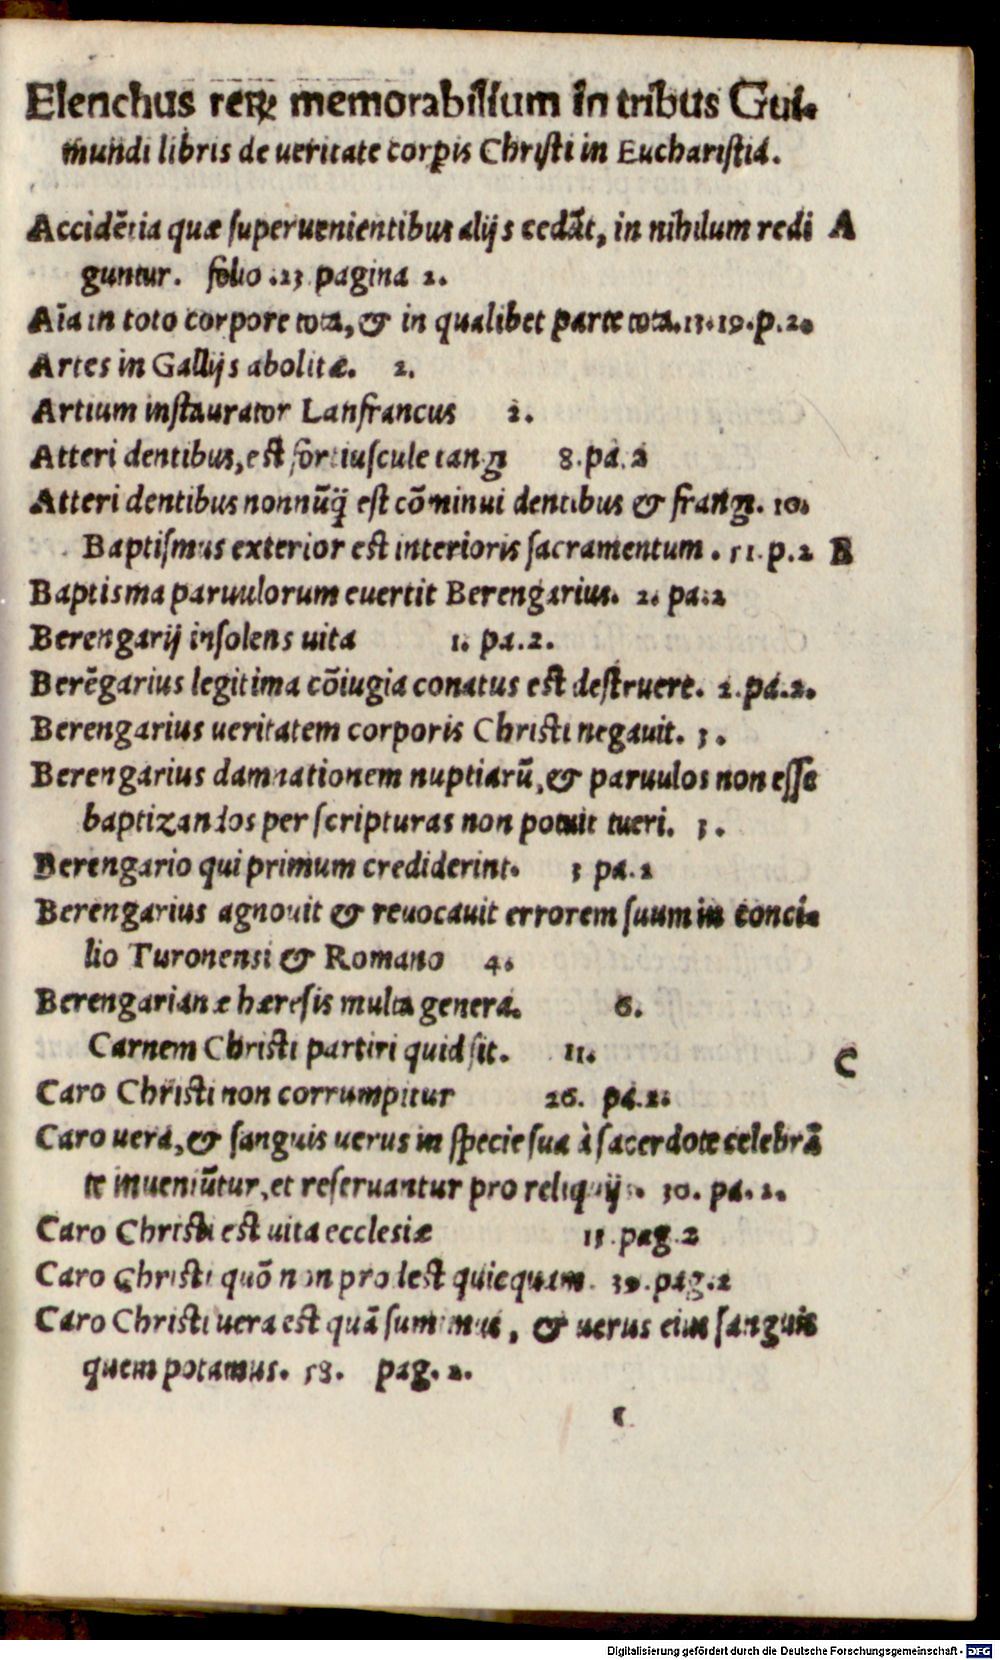 Elenchus reꝝ memorabilium in tribus Gui-
mundi libris de ueritate corꝑis Christi in Eucharistia.
Accidẽtia quæ superuenientibus alijs cedãt, in nihilum redi A
guntur. folio .23 pagina 2.
Aĩa in toto corpore tota, & in qualibet parte tota. 13.19.p.2.
Artes in Gallijs abolitæ. 2.
Artium instaurator Lanfrancus 2.
Atteri dentibus, est fortiuscule tang 8.pa.2
Atteri dentibus nonnũq̃ est cõminui dentibus & frang. 10.
Baptismus exterior est interioris sacramentum. 51.p.2 B
Baptisma paruulorum euertit Berengarius. 2. pa.2
Berengarij insolens uita 1. pa.2.
Berẽgarius legitima cõiugia conatus est destruere. 2.pa.2.
Berengarius ueritatem corporis Christi negauit. 3.
Berengarius damnationem nuptiarũ, & paruulos non esse
baptizandos per scripturas non potuit tueri. 3.
Berengario qui primum crediderint. 3 pa.2
Berengarius agnouit & reuocauit errorem suum in conci-
lio Turonensi & Romano 4.
Berengarianæ hæresis multa genera. 6.
Carnem Christi partiri quid sit. 11. C
Caro Christi non corrumpitur 26. pa.2.
Caro uera, & sanguis uerus in specie sua à sacerdote celebrã
te inueniũtur, et reseruantur pro reliquijs. 30. pa. 2.
Caro Christi est uita ecclesiæ 15.pag.2
Caro Christi quõ non prodest quicquam. 39.pag.2
Caro Christi uera est quã sumimus, & uerus eius sanguis
quem potamus. 58. pag. 2.
Digitalisierung gefördert durch die Deutsche Forschungsgemeinschaft - DFG